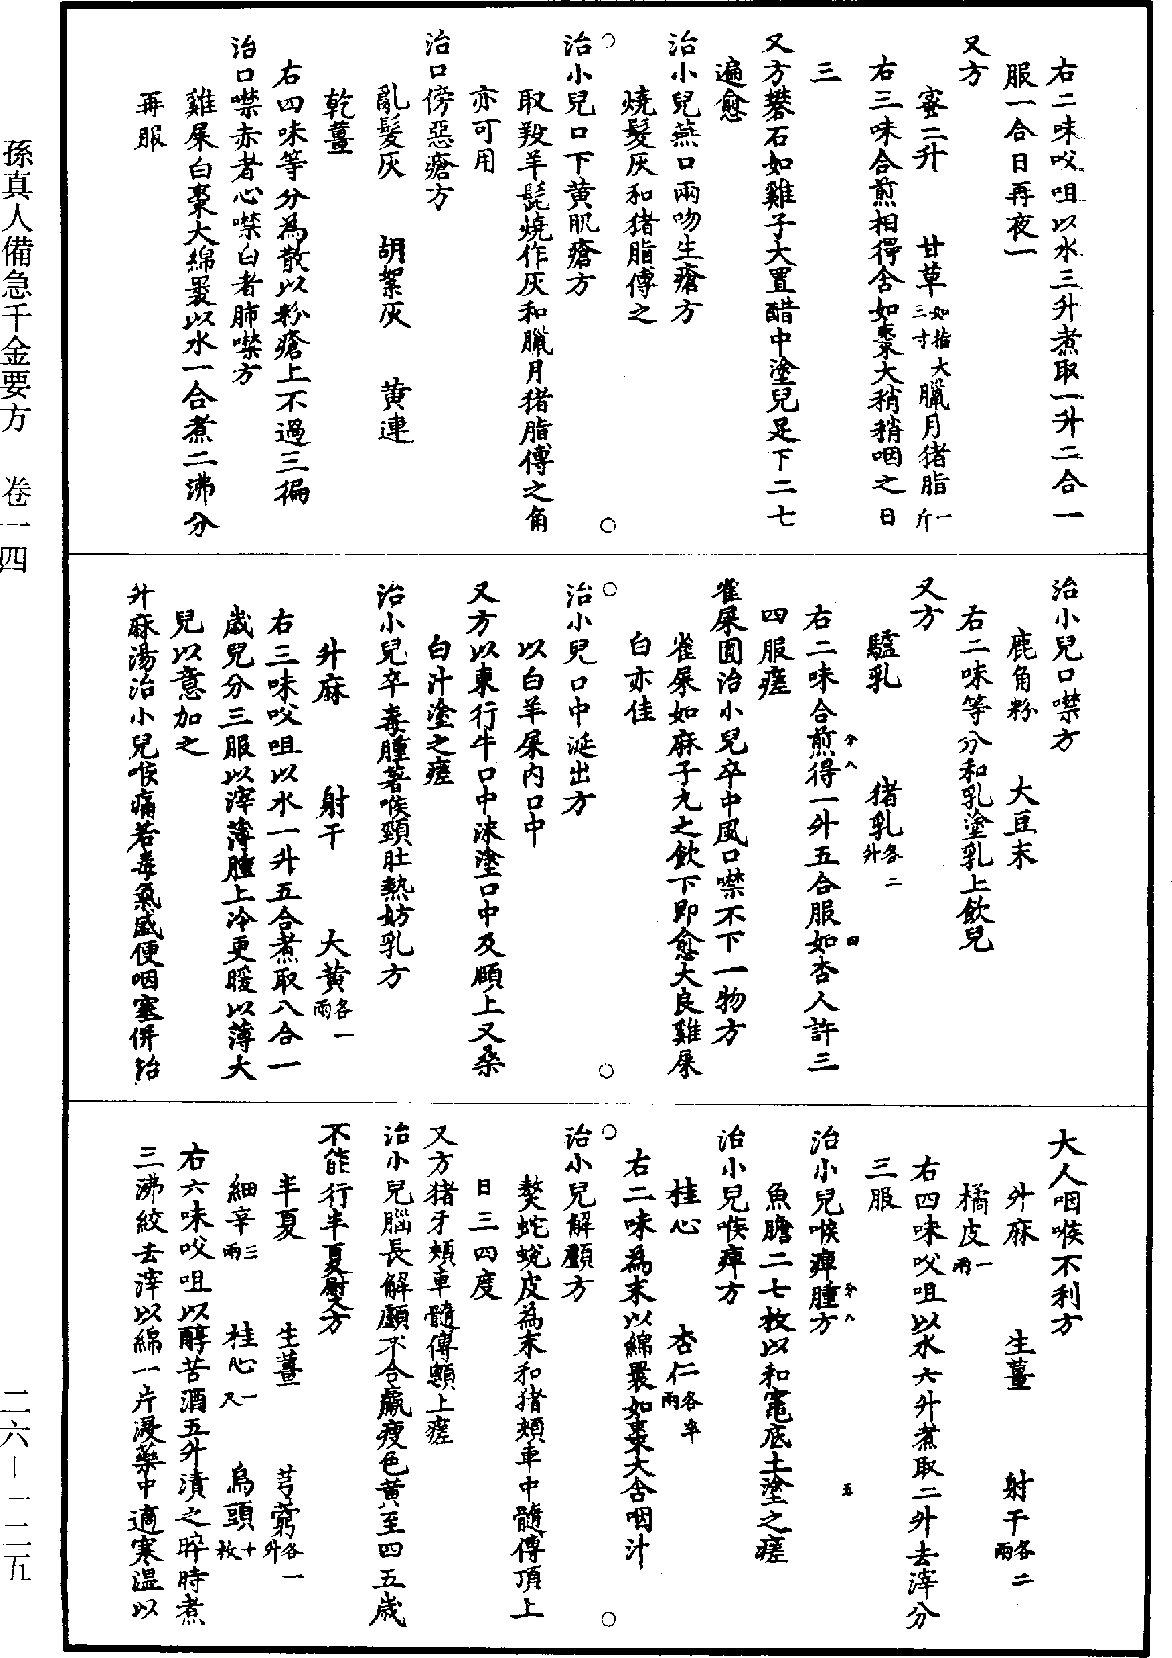 右二味㕮咀以水三升煮取一升二合一
服一合日再夜一
又方
蜜二升　甘草如指大三寸　臘月猪脂一斤
右三味合煎相得含如棗大稍稍咽之日
三
又方礬石如雞子大置醋中塗兒足下二七
遍愈
治小兒燕口兩吻生瘡方
燒髮灰和猪脂傅之
治小兒口下黄肌瘡方
取羖羊髭燒作灰和臘月猪脂傅之角
亦可用
治口傍惡瘡方
亂髮灰　胡絮灰　黄連
乾薑
右四味等分為散以粉瘡上不過三徧
治口噤赤者心噤白者肺噤方
雞屎白棗大綿裹以水一合煮二沸分
再服
治小兒口噤方
鹿角粉　大豆末
右二味等分和乳塗乳上飲兒
又方
驢乳　猪乳各二升
右二味合煎得一升五合服如杏人許三
四服瘥
雀屎圓治小兒卒中風口噤不下一物方
雀屎如麻子丸之飲下即愈大良雞屎
白亦佳
治小兒口中涎出方
以白羊屎内口中
又方以東行牛口中沫塗口中及頤上又桑
白汁塗之瘥
治小兒卒毒腫著喉頸壯熱妨乳方
升麻　射干　大黄各一兩
右三味㕮咀以水一升五合煮取八合一
歲兒分三服以滓薄腫上冷更暖以薄大
兒以意加之
升麻湯治小兒喉痛若毒氣盛便咽塞併治
大人咽喉不利方
升麻　生薑　射干各二兩
橘皮一兩
右四味㕮咀以水六升煮取二升去滓分
三服
治小兒喉痺腫方
魚膽二七枚以和竈底土塗之瘥
治小兒喉痺方
桂心　杏仁各半兩
右二味為末以綿裹如棗大含咽汁
治小兒解顱方
熬蛇蛻皮為末和猪頰車中髓傅頂上
日三四度
又方猪牙頰車髓傅顖上瘥
治小兒腦長解顱不合羸瘦色黄至四五歲
不能行半夏熨方
半夏　生薑　芎藭各一升
細辛三兩　桂心一尺　烏頭十枚
右六味㕮咀以醇苦酒五升漬之晬時煮
三沸絞去滓以綿一片浸藥中適寒温以
孫真人備急千金要方　卷一四
二六—二二五